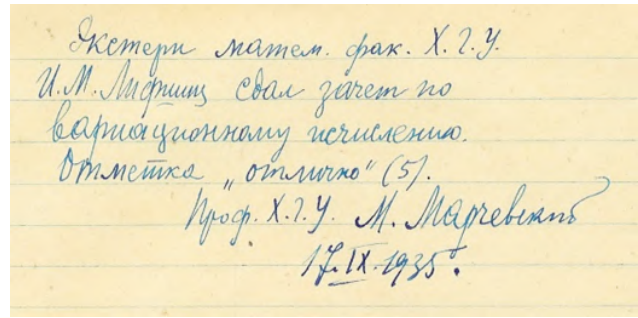 Экстерн матем. фак. Х.Г.У.
И.М. Лифшиц сдал зачет по
вариационному исчислению.
Отметка „отлично“ (5).
Проф. Х.Г.У. М. Марчевский
17.IX.1935.